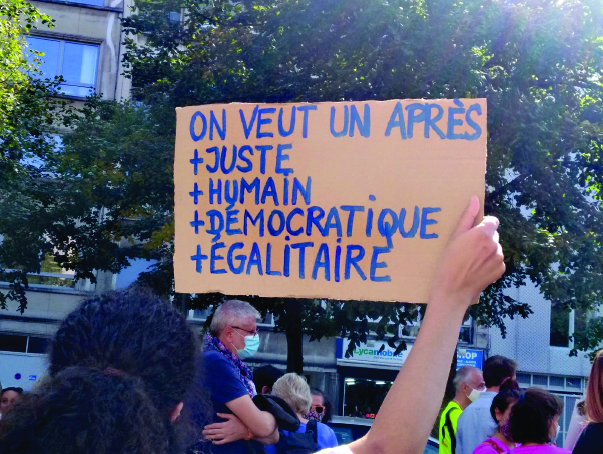 ON VEUT UN APRÈS
+JUSTE
+HUMAIN
+DÉMOCRATIQUE
+ÉGALITAIRE
Lycamobile
OP